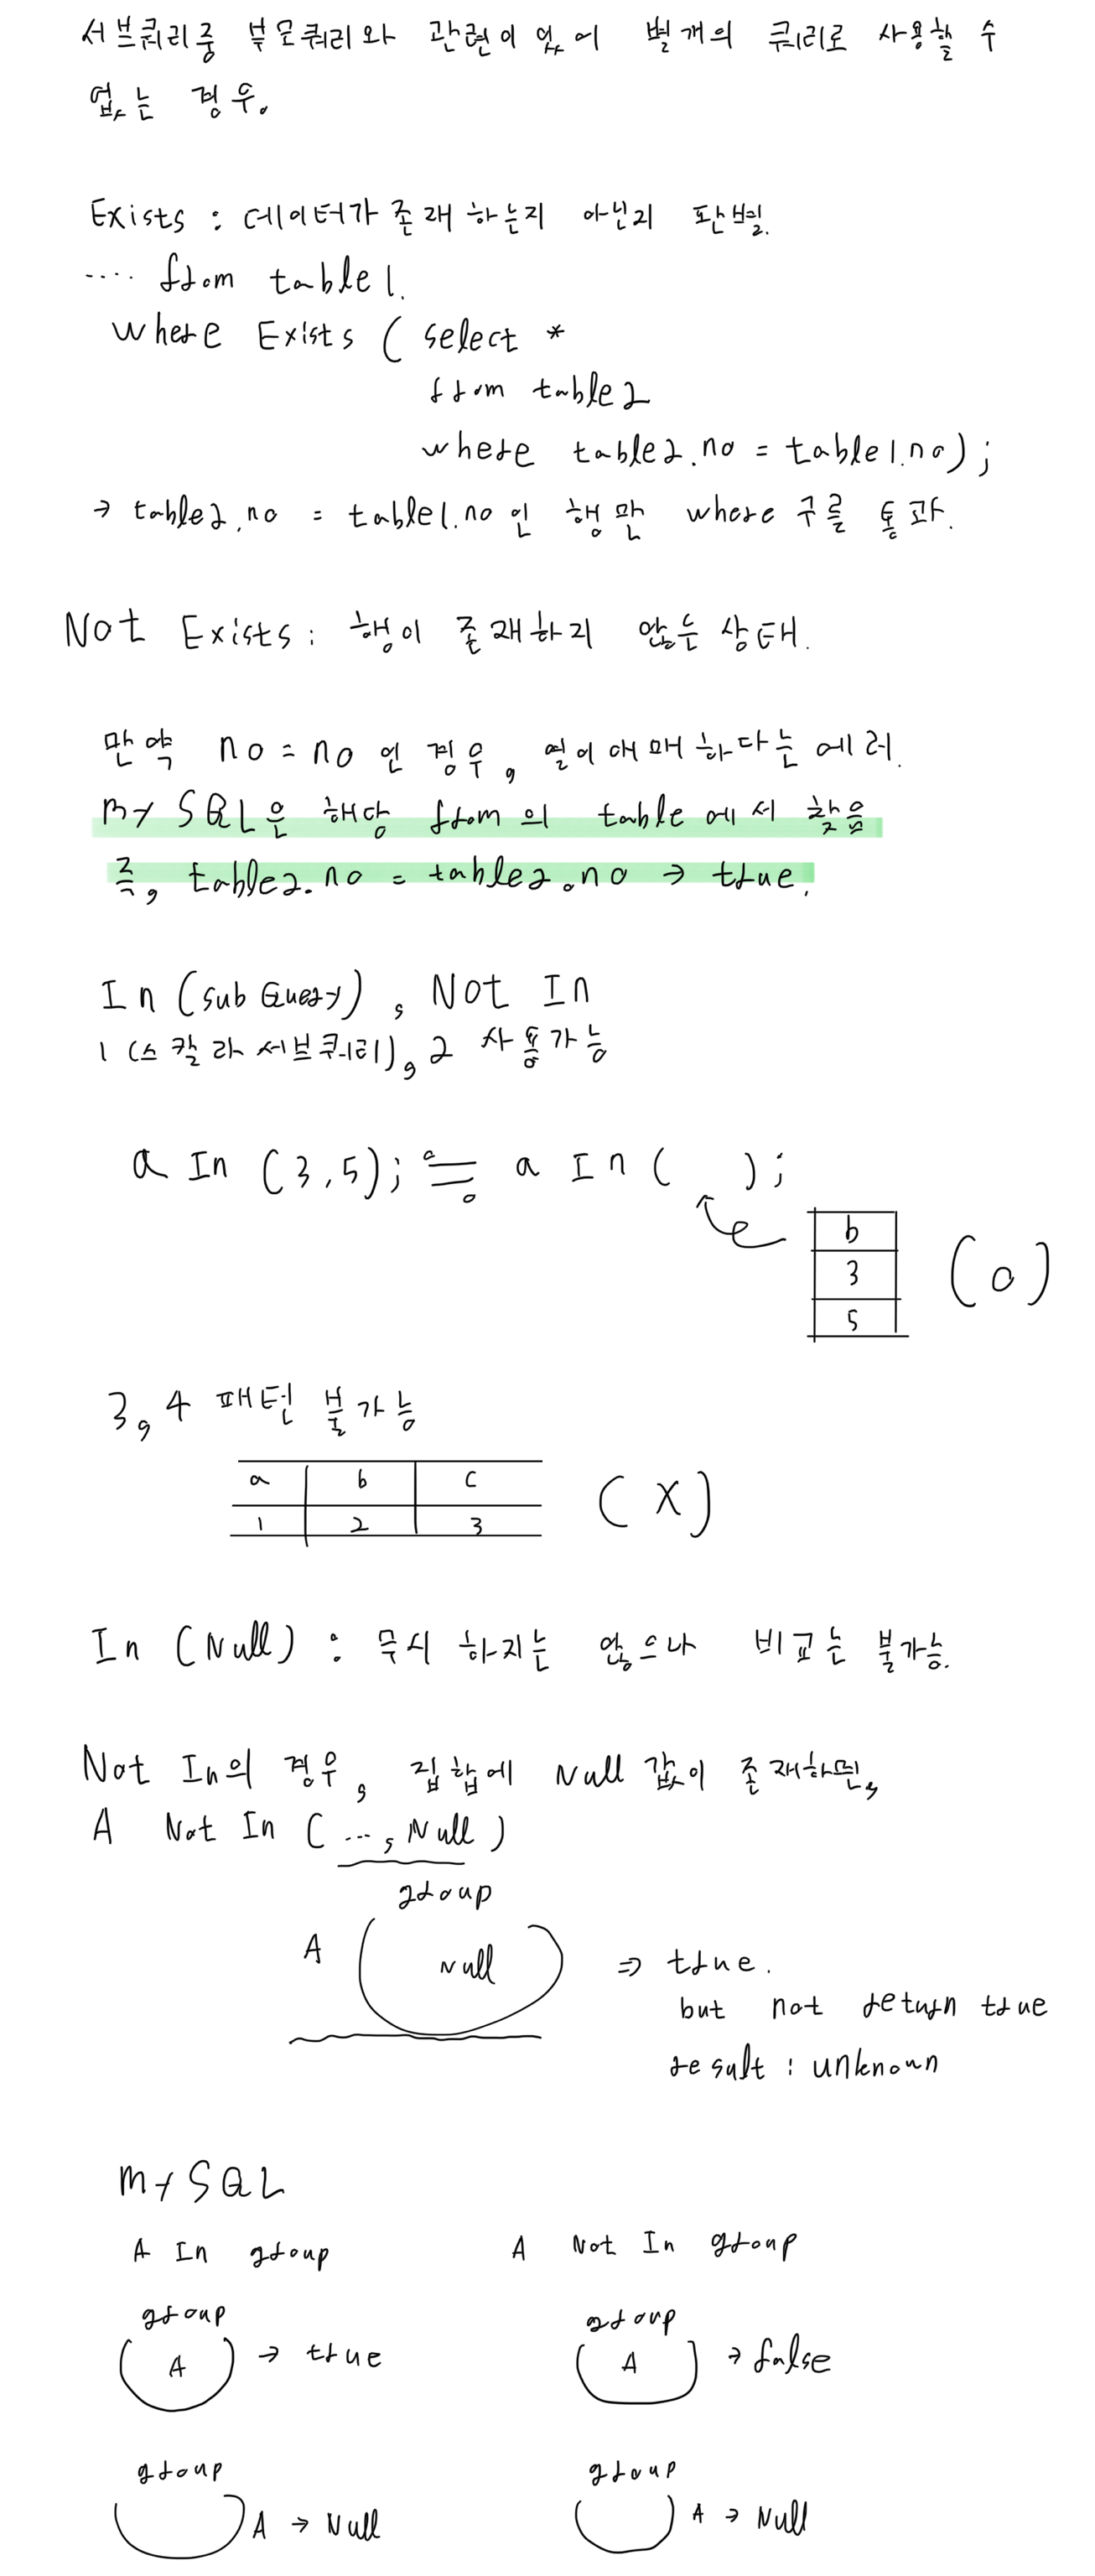 서브쿼리중 부모쿼리와 관련이 있어 별개의 쿼리로 사용할 수
없는 경우.
Exists : 데이터가 존재 하는지 아닌지 판별.
.... from table1.
where Exists ( select *
from table2
where table2.no = table1.no);
→ table2.no = table1.no 인 행만 where 구를 통과.
Not Exists : 행이 존재하지 않는 상태.
만약 no = no 인 경우, 열이 애매하다는 에러.
MySQL은 해당 from의 table에서 찾음
즉, table2.no = table2.no → true.
In (sub Query), Not In
1 (스칼라 서브쿼리), 2 사용가능
a In (3,5); ≒ a In ( );
b
3 (o)
5
3, 4 패턴 불가능
a b c
1 2 3 (X)
In (Null) : 무시 하지는 않으나 비교는 불가능.
Not In의 경우, 집합에 Null 값이 존재하면,
A Not In ( ..., Null )
group
A Null ⇒ true.
but not return true
result : unknown
MySQL
A In group A Not In group
group group
A → true A → false
group group
A → Null A → Null